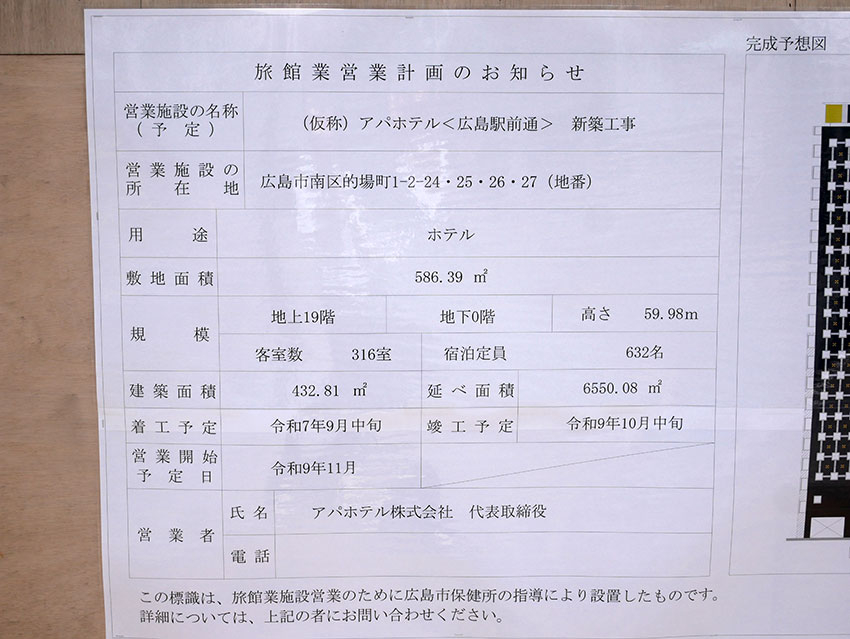 完成予想図
旅館業営業計画のお知らせ
営業施設の名称
(予定)
(仮称)アパホテル<広島駅前通> 新築工事
営業施設の
所在地
広島市南区的場町1-2-24・25・26・27(地番)
用途
ホテル
敷地面積
586.39 ㎡
規模
地上19階
地下0階
高さ 59.98m
客室数 316室
宿泊定員 632名
建築面積
432.81 ㎡
延べ面積
6550.08 ㎡
着工予定
令和7年9月中旬
竣工予定
令和9年10月中旬
営業開始
予定日
令和9年11月
営業者
氏名
アパホテル株式会社 代表取締役
電話
この標識は、旅館業施設営業のために広島市保健所の指導により設置したものです。
詳細については、上記の者にお問い合わせください。